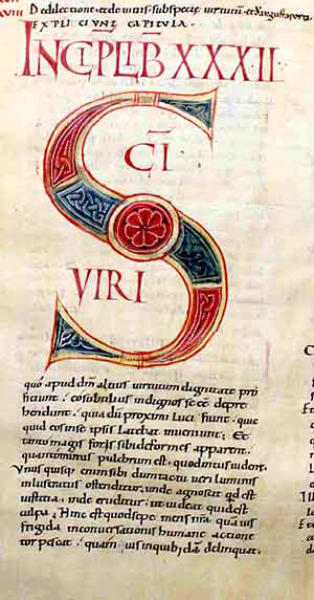 XVIII De dilectione et de uitiis sub specie uirtutū et de angusta porta
EXPLICIUNT CAPITULA
INCP LIB XXXII
S
CI
VIRI
quo apud dm altius uirtutum dignitate pro
ficiunt · eo subtilius indignos se eē depre
hendunt · quia dū proximi luci fiunt · que
quid eos in se ipsis latebat inueniunt · Et
tanto magis foris sibi deformes apparent ·
quanto nimius pulcrum est · quod intus uident ·
Unus quisque enim sibi dum tactu ueri luminis
inlustratus ostenditur · unde agnoscit qd est
iustitia · inde eruditur · ut uideat quid est
culpa · Hinc est quod sepe mens nra quauis
frigida in conuersationis humane actione
torpescat · quamuis in quibusdā delinquat ·